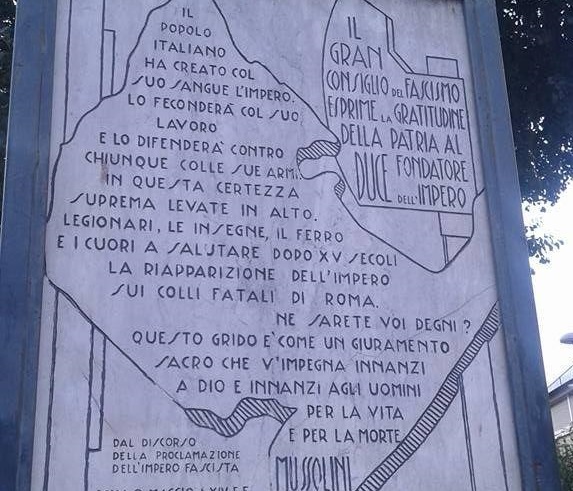 IL
POPOLO
ITALIANO
HA CREATO COL
SUO SANGUE L'IMPERO.
LO FECONDERÀ COL SUO
LAVORO
E LO DIFENDERÀ CONTRO
CHIUNQUE COLLE SUE ARMI.
IN QUESTA CERTEZZA
SUPREMA LEVATE IN ALTO.
LEGIONARI, LE INSEGNE, IL FERRO
E I CUORI A SALUTARE DOPO XV SECOLI
LA RIAPPARIZIONE DELL'IMPERO
SUI COLLI FATALI DI ROMA.
NE SARETE VOI DEGNI?
QUESTO GRIDO È COME UN GIURAMENTO
SACRO CHE V'IMPEGNA INNANZI
A DIO E INNANZI AGLI UOMINI
PER LA VITA
E PER LA MORTE
MUSSOLINI
DAL DISCORSO
DELLA PROCLAMAZIONE
DELL'IMPERO FASCISTA
MAGGIO
IL
GRAN
CONSIGLIO DEL FASCISMO
ESPRIME LA GRATITUDINE
DELLA PATRIA AL
DUCE FONDATORE
DELL'IMPERO